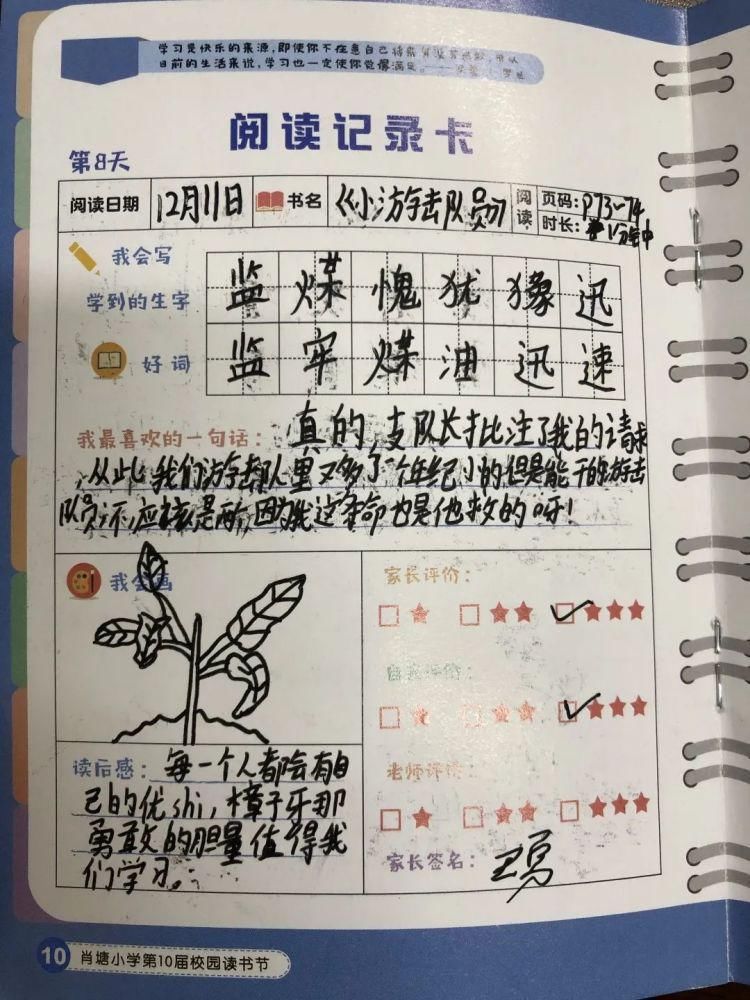 学习是快乐的来源,即使你不在意自己将来
目前的生活来说,学习也一定使你觉得满足。
阅读记录卡
第8天
阅读日期 12月11日 书名 《小游击队员》 阅读 页码:P73-74
时长:1分钟
我会写
学到的生字
监 煤 愧 犹 豫 迅
好词
监 牢 煤 油 迅 速
我最喜欢的一句话:真的,支队长批注了我的请求
,从此,我们游击队里又多了个年纪小的但是能干的游击
队员,不,应该是两,因为我这条命也是他救的呀!
我会画
家长评价:
自我评价:
老师评价:
读后感:每一个人都会有自
己的优shi,樟子牙那
勇敢的胆量值得我
们学习。
家长签名:
10 肖塘小学第10届校园读书节